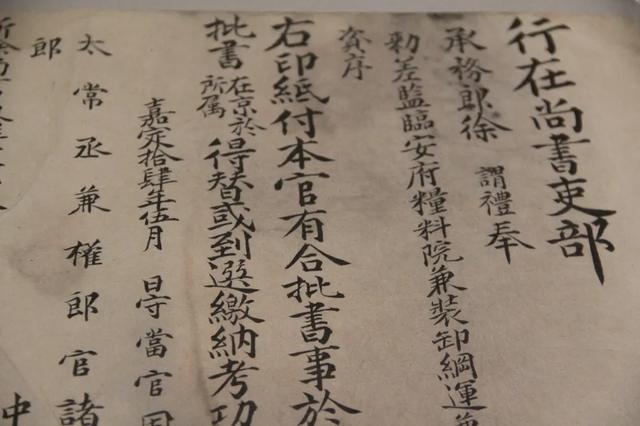 行在尚書吏部
承務郎徐 謂禮奉
勅差監臨安府糧料院兼裝卸綱運兼
資序
右印紙付本官有合批書事於
批書在京於所属得替或到選繳納考功
嘉定拾肆年伍月 日守當官周
太常丞兼權郎官諸
郎
中